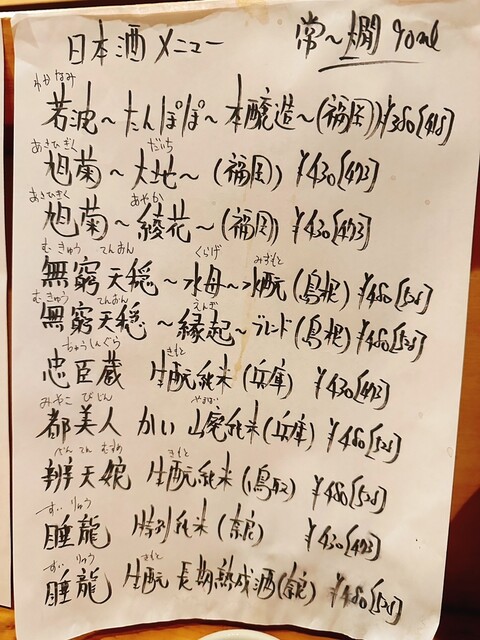 日本酒メニュー 常~燗 90ml
わかなみ
若波~たんぽぽ~本醸造~(福岡)¥380[418]
あさひぎく だいち
旭菊~大地~(福岡)¥430[473]
あさひぎく あやか
旭菊~綾花~(福岡)¥430[473]
むきゅう てんおん くらげ みずもと
無窮天穏~水母~水酛(島根)¥480[528]
むきゅう てんおん えんぎ
無窮天穏~縁起~ブレンド(島根)¥480[528]
ちゅうしんぐら きもと
忠臣蔵 生酛純米(兵庫)¥430[473]
みやこ びじん やまはい
都美人 かい 山廃純米(兵庫)¥480[528]
べんてん むすめ きもと
辨天娘 生酛純米(鳥取)¥480[528]
すいりゅう
睡龍 特別純米(奈良)¥430[473]
すいりゅう きもと
睡龍 生酛 長期熟成酒(奈良)¥480[528]